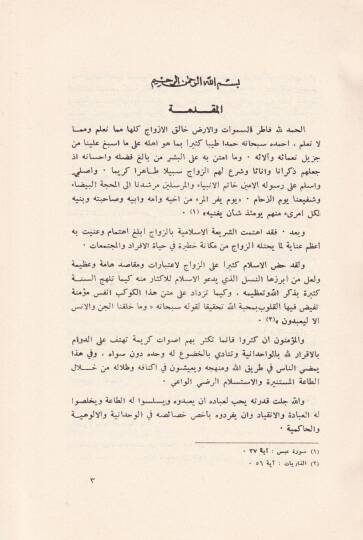 بسم الله الرحمن الرحيم
المقدمة
الحمد لله فاطر السموات والارض خالق الازواج كلها مما نعلم ومما
لا نعلم ، احمده سبحانه حمدا طيبا كثيرا بما هو اهله على ما اسبغ علينا من
جزيل نعمائه وآلائه . وما امتن به على البشر من بالغ فضله واحسانه اذ
جعلهم ذكرانا واناثا وشرع لهم الزواج سبيلا طاهرا كريما . واصلي
واسلم على رسوله الامين خاتم الانبياء والمرسلين مرشدنا الى المحجة البيضاء
وشفيعنا يوم الزحام . «يوم يفر المرء من اخيه وامه وابيه وصاحبته وبنيه
لكل امرىء منهم يومئذ شأن يغنيه» (١) .
وبعد . فقد اهتمت الشريعة الاسلامية بالزواج ابلغ اهتمام وعنيت به
اعظم عناية لما يحتله الزواج من مكانة خطيرة في حياة الافراد والمجتمعات .
ولقد حض الاسلام كثيرا على الزواج لاعتبارات ومقاصد هامة وعظيمة
ولعل من ابرزها النسل الذي يدعو الاسلام للاكثار منه كيما تلهج السنة
كثيرة بذكر الله وتعظيمه ، وكيما تزداد على متن هذا الكوكب انفس مؤمنة
تفيض فيها القلوب بمحبة الله تحقيقا لقوله سبحانه « وما خلقنا الجن والانس
الا ليعبدون »(٢) .
والمؤمنون ان كثروا فانما تكثر بهم اصوات كريمة تهتف على الدوام
بالاقرار لله بالواحدانية وتنادي بالخضوع له وحده دون سواه ، وفي هذا
يمضي الناس في طريق الله ومنهجه ويعيشون في اكنافه وظلاله من خلال
الطاعة المستنيرة والاستسلام الرضي الواعي .
والله جلت قدرته يحب لعباده ان يعبدوه ويسلسوا له الطاعة ويخلصوا
له العبادة والانقياد وان يفردوه بأخص خصائصه في الوحدانية والالوهية
والحاكمية .
(١) سورة عبس : آية ٣٧ .
(٢) الذاريات : آية ٥٦ .
٣